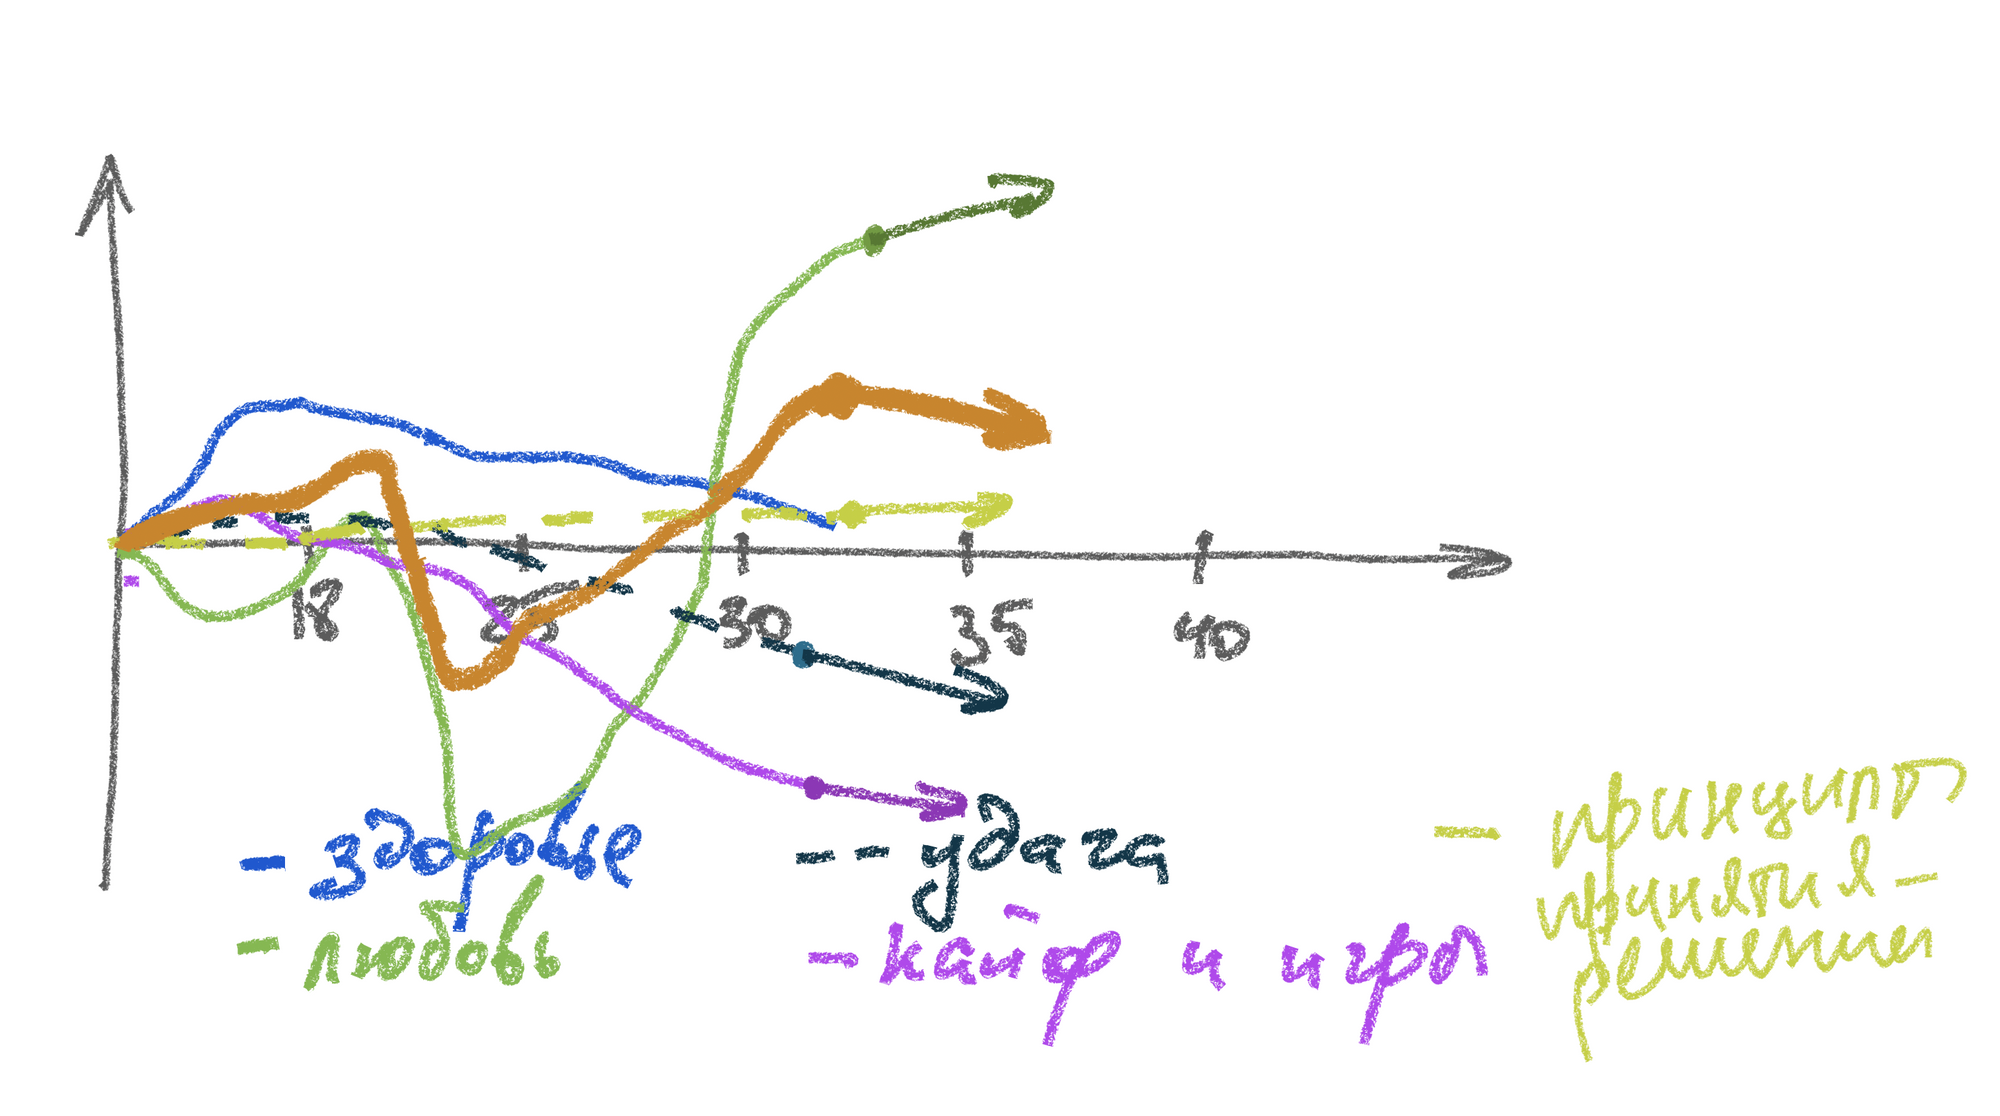 18 25 30 35 40
- здоровье
- любовь
-- удача
- кайф и игры
- принципы
принятия -
решении